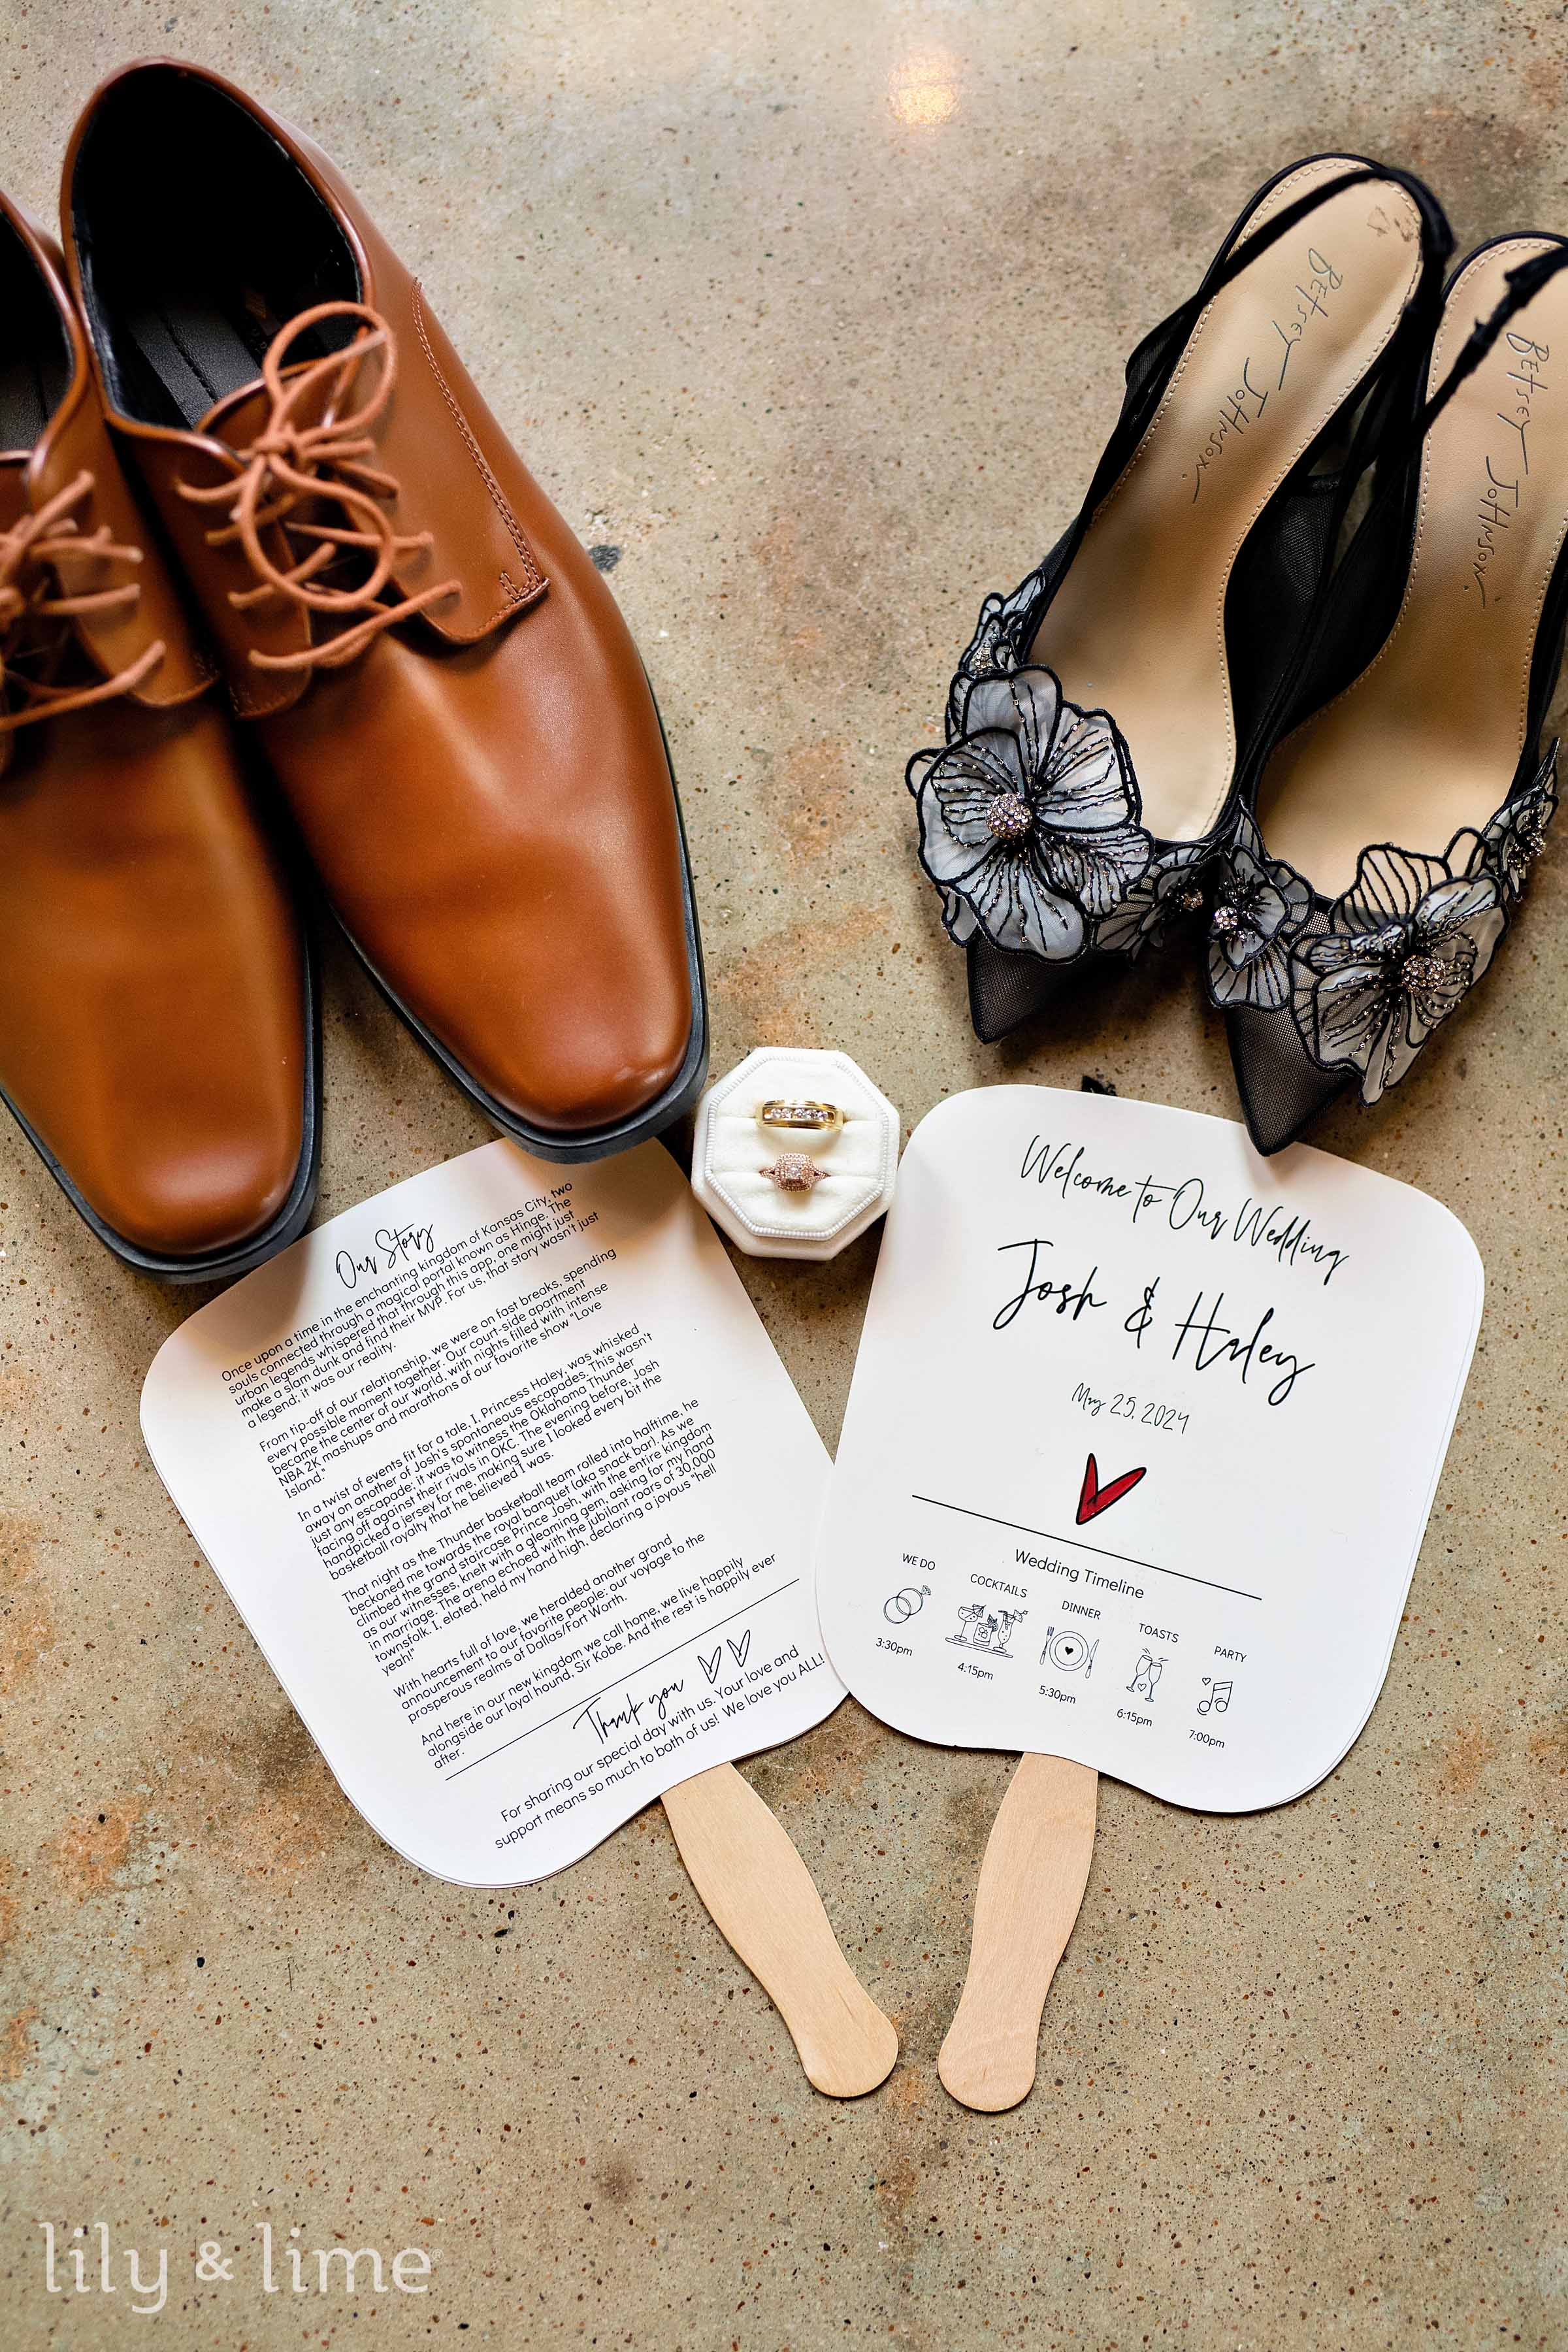 BETSEY JOHNSON.
BETSEY JOHNSON.
Our Story
Once upon a time in the enchanting kingdom of Kansas City, two
souls connected through a magical portal known as Hinge. The
urban legends whispered that through this app, one might just
make a slam dunk and find their MVP. For us, that story wasn't just
a legend; it was our reality.
From tip-off of our relationship, we were on fast breaks, spending
every possible moment together. Our court-side apartment
became the center of our world, with nights filled with intense
NBA 2K mashups and marathons of our favorite show "Love
Island."
In a twist of events fit for a tale, I, Princess Haley, was whisked
away on another of Josh's spontaneous escapades. This wasn't
just any escapade; it was to witness the Oklahoma Thunder
facing off against their rivals in OKC. The evening before, Josh
handpicked a jersey for me, making sure I looked every bit the
basketball royalty that he believed I was.
That night as the Thunder basketball team rolled into halftime, he
beckoned me towards the royal banquet (aka snack bar). As we
climbed the grand staircase Prince Josh, with the entire kingdom
as our witnesses, knelt with a gleaming gem, asking for my hand
in marriage. The arena echoed with the jubilant roars of 30,000
townsfolk. I, elated, held my hand high, declaring a joyous "hell
yeah!"
With hearts full of love, we heralded another grand
announcement to our favorite people: our voyage to the
prosperous realms of Dallas/Fort Worth.
And here in our new kingdom we call home, we live happily
alongside our loyal hound, Sir Kobe. And the rest is happily ever
after.
Thank you
For sharing our special day with us. Your love and
support means so much to both of us! We love you ALL!
Welcome to Our Wedding
Josh & Haley
May 25, 2024
Wedding Timeline
WE DO
COCKTAILS
DINNER
TOASTS
PARTY
3:30pm
4:15pm
5:30pm
6:15pm
7:00pm
lily & lime